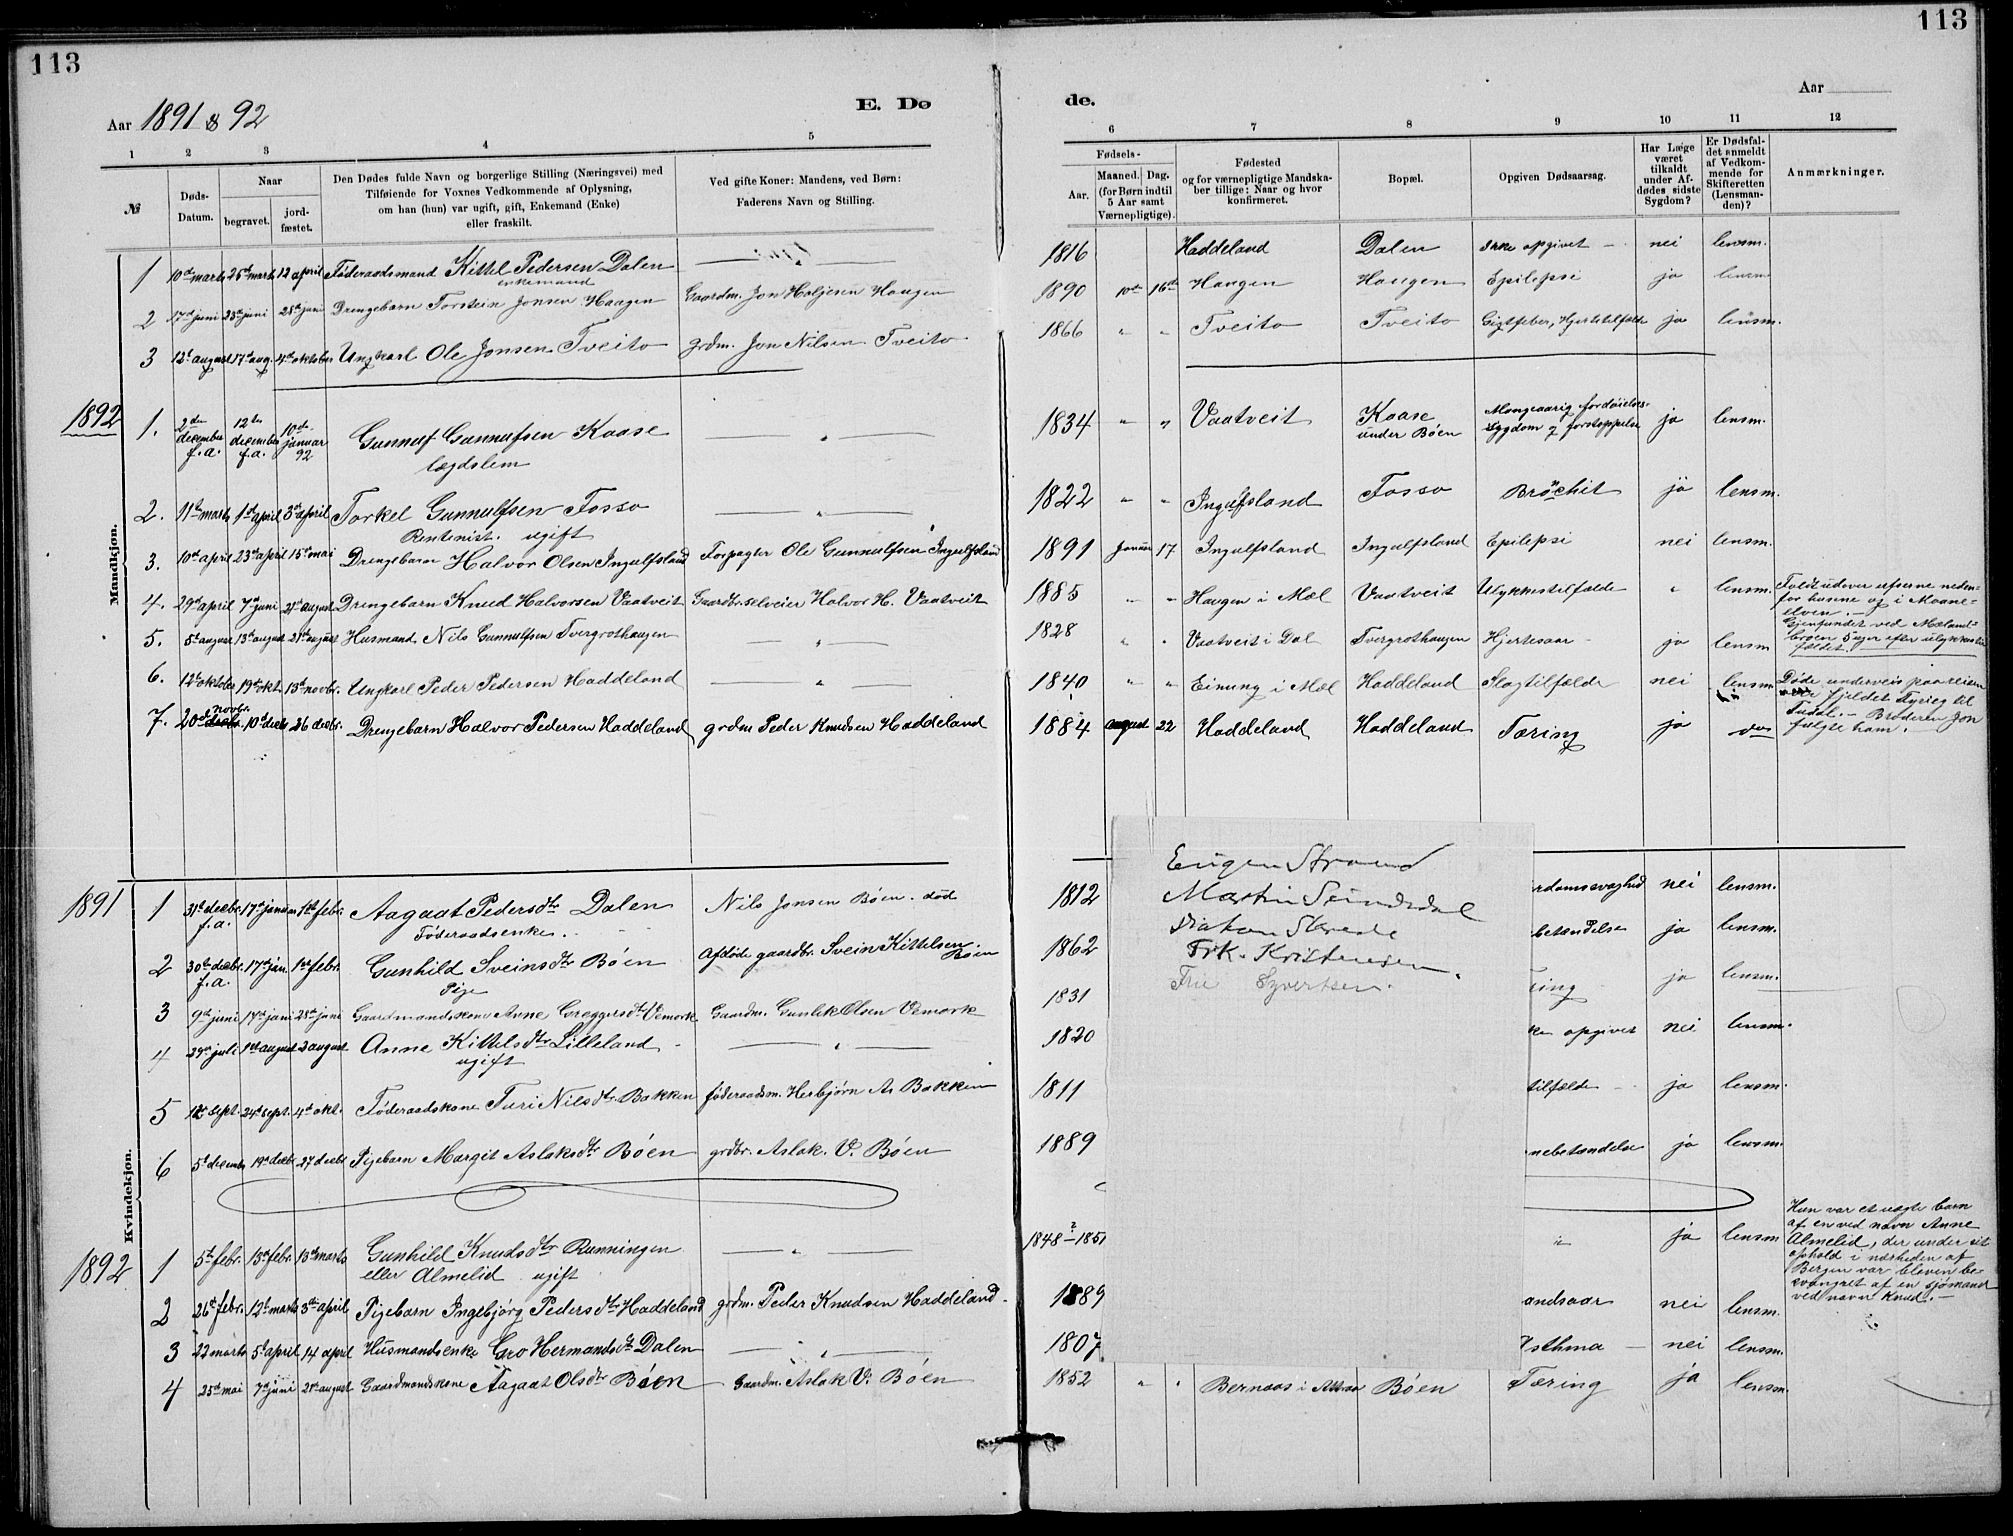 113
113
Aar 1891 & 92
E. Dø
de.
Aar
1
2
3
4
5
6
7
8
9
10
11
12
№
Døds-
Datum.
Naar
begravet.
jord-
fæstet.
Den Dødes fulde Navn og borgerlige Stilling (Næringsvei) med
Tilføiende for Voxnes Vedkommende af Oplysning,
om han (hun) var ugift, gift, Enkemand (Enke)
eller fraskilt.
Ved gifte Koner: Mandens, ved Børn:
Faderens Navn og Stilling.
Fødsels-
Aar.
Maaned. Dag.
(for Børn indtil
5 Aar samt
Værnepligtige).
Fødested
og for værnepligtige Mandska-
ber tillige: Naar og hvor
konfirmeret.
Bopæl.
Opgiven Dødsaarsag.
Har Læge
været
tilkaldt
under Af-
dødes sidste
Sygdom?
Er Dødsfal-
det anmeldt
af Vedkom-
mende for
Skifteretten
(Lensman-
den)?
Anmærkninger.
Mandkjøn.
1 10de marts 25de marts 12 april Føderaadsmand Kittil Pedersen Dalen 1816 Haddeland Dalen Ikke opgivet - nei lensm.
enkemand
2 17de juni 23de juni 28de juni Drengebarn Torstein Jonsen Haugen Gaardm. Jon Haljesen Haugen 1890 10de 16de Haugen Haugen Epilepsi ja lensm.
3 12te august 17de aug. 4de oktober Ungkarl Ole Jonsen Tveito grdm. Jon Nilsen Tveito 1866 " " Tveito Tveito Gigtfeber, Hjertetilfælde ja lensm.
1892
1. 2den december f.a. 12te december f.a. 10de januar 92 Gunnuf Gunnufsen Kaase " 1834 " " Vaatveit Kaase under Bøen Mangeaarig fordøielses- sygdom og forstoppelse ja lensm.
lægdslem
2. 11te marts 1ste april 3de april Torkel Gunnulfsen Fosso " 1822 " " Ingulfsland Fosso Brochit ja lensm.
Rentenist. ugift
3. 10de april 23de april 15de mai Drengebarn Halvor Olsen Ingulfsland Forpagter Ole Gunnulfsen Ingulfsland 1891 Januar 17 Ingulfsland Ingulfsland Epilepsi nei lensm.
4. 29de april 7de juni 21de august Drengebarn Knud Halvorsen Vaatveit Gaardbr. selveier Halvor H. Vaatveit 1885 " " Haugen i Mæl Vaatveit Ulykkestilfælde " lensm.
Faldt udover ufserne neden-
for husene og i Maane-
elven. -
Gjenfundet ved Mæland-
5. 5te august 13de august 21de august Husmand Nils Gunnulfsen Tvergrothaugen " 1828 " " Vaatveit i Dal Tvergrothaugen Hjertesaar - ja lensm
6. 12te oktober 19de okt. 13de novbr. Ungkarl Peder Pedersen Haddeland " 1840 " " Einung i Mæl Haddeland Slagtilfælde nei lensm
Døde underveis paa reisen
fjeldet
til
Tudal. - Broderen Jon
fulgte ham.
7. 20de novbr. 10de decbr 26 decbr. Drengebarn Halvor Pedersen Haddeland grdm Peder Knudsen Haddeland 1884 august 22 Haddeland Haddeland Tæring ja do
Kvindekjøn.
1891
1 31te decbr. f.a. 17de januar 1ste febr. Aagaat Pedersdtr Dalen Nils Jonsen Bøen. død 1812 rdomssvaghed nei lensm.
Føderaadsenke.
2 30te decbr. f.a. 17de jan. 1ste febr. Gunhild Sveinsdtr Bøen Afdøde gaardbr. Svein Kittelsen Bøen 1862 betændelse ja lensm.
Pige
3 9de juni 17de juni 28de juni Gaardmandskone Anne Greggersdtr Vemork Gaardm. Gunlek Olsen Vemork 1831 ing ja lensm.
4 29de juli 1ste august 2 august Anne Kittelsdtr Lilleland " 1820 ke opgivet nei lensm.
ugift
5 12te sept. 24de sept. 4de okt. Føderaadskone Turi Nilsdtr Bakken føderaadsm. Herbjørn As. Bakken 1811 tilfælde - ja lensm.
6 5te decembr 19de decbr 27 decbr Pigebarn Margit Aslaksdtr Bøen grdbr. Aslak V. Bøen 1889 nebetændelse ja lensm.
1892
1 5te febr. 13de febr. 13de marts Gunhild Knudsdtr Runningen " 1848-1851 " ja lensm
eller Almelid ugift
Hun var et uægte barn
af en ved navn Anne
Almelid, der under sit
ophold i nærheden af
Bergen var bleven be-
svangret af en sjømand
ved navn Knud. -
2 26de febr. 12te marts 3de april Pigebarn Ingebjørg Pedersdtr Haddeland grdm. Peder Knudsen Haddeland. 1889 andsaar nei lensm.
3 22 marts 5te april 14 april Husmandsenke Gro Hermandsdtr Dalen " 1807 Asthma - nei lensm.
4 25de mai 7de juni 21de august Gaardmandskone Aagaat Olsdtr Bøen Gaardm. Aslak V. Bøen 1852 " " Bernaas i Attraa Bøen Tæring ja lensm.
Eugen Strand
Martin
Diakon
Frk. Kristensen.
Fru Syvertsen.